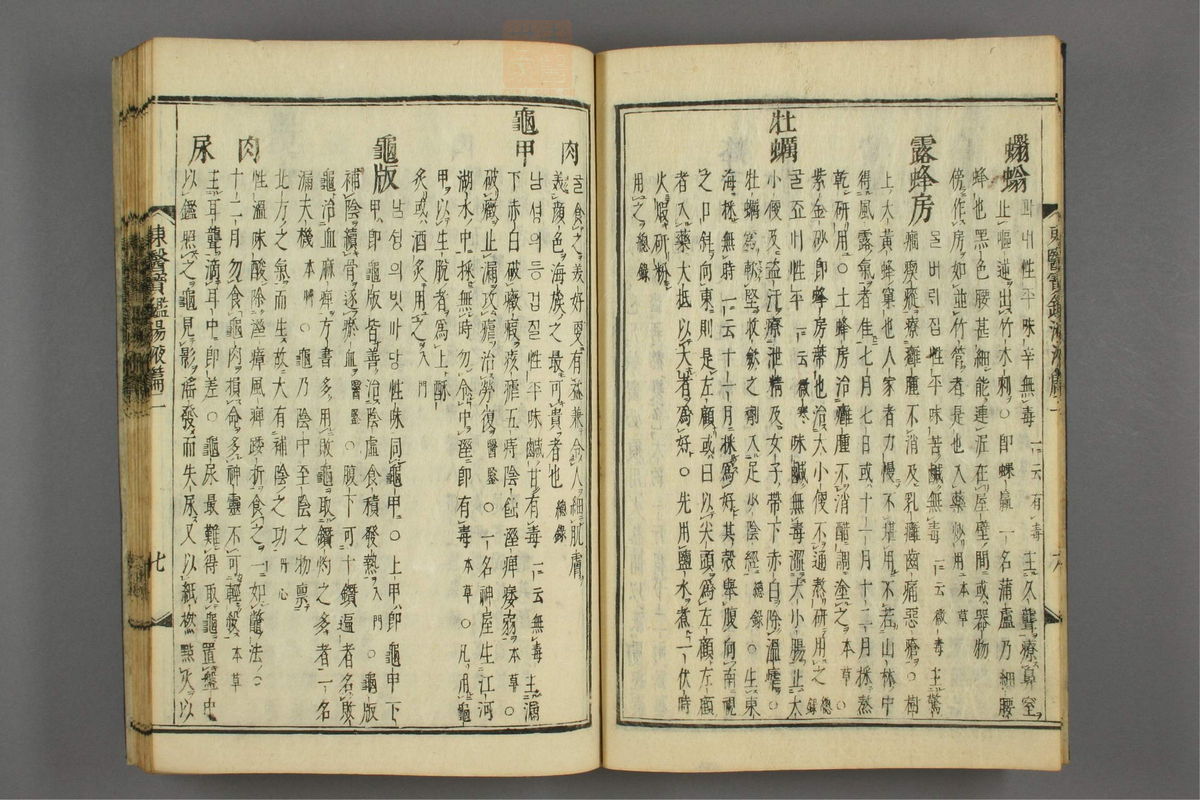 蠮螉
바ᄃᆡ性平味辛無毒一云有毒主久聾療鼻窒
止嘔逆出竹木刺○卽蜾蠃一名蒲蘆乃細腰
蜂也黑色腰甚細能連泥在屋壁間或器物
傍作房如並竹管者是也入藥炒用本草
露蜂房
믈버릐집性平味苦鹹無毒一云微毒主驚
癎瘈瘲療癰腫不消及乳癰齒痛惡瘡○樹
上大黃蜂窠也人家者力慢不堪用不若山林中
得風露氣者佳七月七日或十一月十二月採熬
乾研用○土蜂房治癰腫不消醋調塗之本草○
紫金砂卽蜂房蔕也治大小便不通熬研用之總錄
牡蠣
굴죠개性平一云微寒味鹹無毒澁大小腸止大
小便及盜汗療泄精及女子帶下赤白除溫瘧○
牡蠣爲軟堅收斂之劑入足少陰經總錄○生東
海採無時一云十一月採爲好其殼擧腹向南視
之口斜向東則是左顧或曰以尖頭爲左顧左顧
者入藥大抵以大者爲好○先用鹽水煮一伏時
火煆硏粉
用之總錄
肉
굴食之美好更有益兼令人細肌膚
美顔色海族之最可貴者也總錄
龜甲
남셩의등겁질性平味鹹甘有毒一云無毒主漏
下赤白破癥瘕痎瘧五痔陰蝕濕痺痿弱本草○
破癥止漏攻瘧治勞復醫鑒○一名神屋生江河
湖水中採無時勿令中濕卽有毒本草○凡用龜
甲以生脫者爲上酥
炙或酒炙用之入門
龜版
남셩의ᄇᆡᆺ바당性味同龜甲○上甲卽龜甲下
甲卽龜版皆善治陰虛食積發熱入門○龜版
補陰續骨逐瘀血醫鑒○腹下可十鑽遍者名敗
龜治血麻痺方書多用敗龜取鑽灼之多者一名
漏天機本草○龜乃陰中至陰之物稟
北方之氣而生故大有補陰之功丹心
肉
性溫味酸除濕瘴風痺踒折食之一如鼈法○
十二月勿食龜肉損命多神靈不可輕殺本草
尿
主耳聾滴耳中卽差○龜尿最難得取龜置盤中
以鑑照之龜見影㴞發而失尿又以紙撚點火以
東醫寶鑑湯液篇二
七